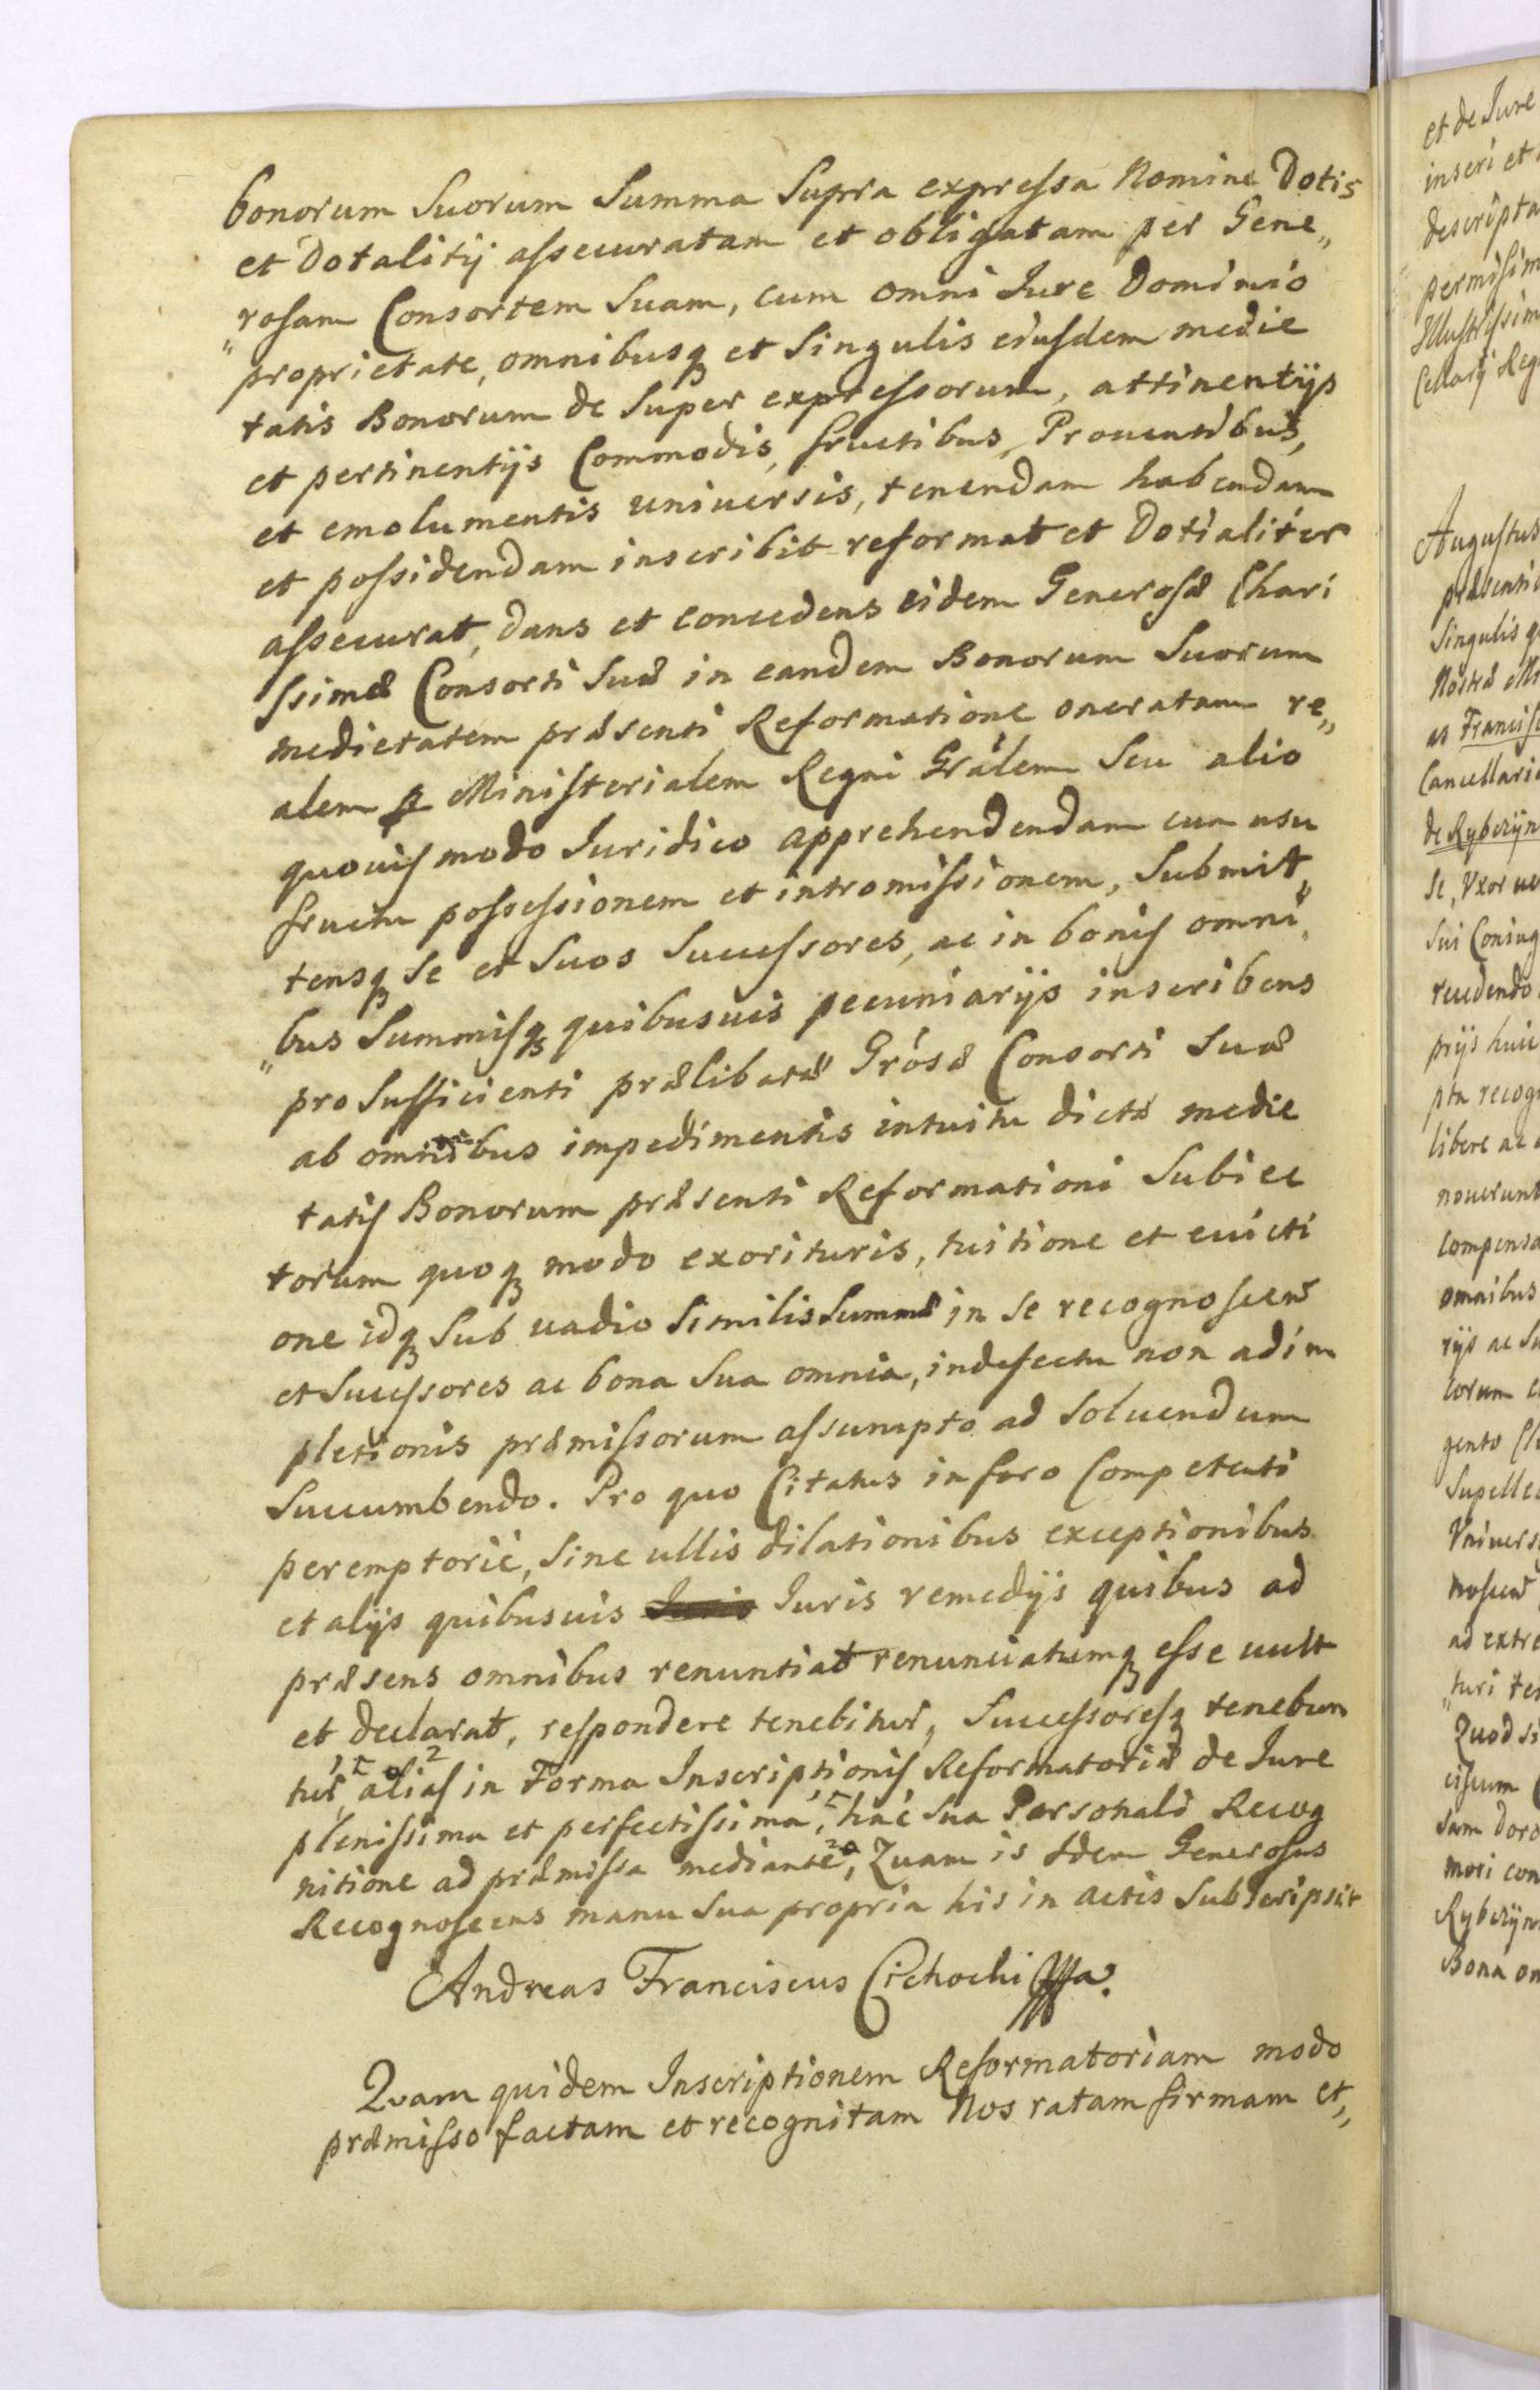 bonorum Suorum Summa Supra expressa Nomine Dotis
et Dotalitij assecuratam et obligatam per Gene„
„rosam Consortem Suam, cum omni Jure Dominio
proprietate, omnibusq et Singulis eiusdem medie
tatis Bonorum de Super expressorum, attinentijs
et pertinentijs Commodis, fructibus, Prouentibus,
et emolumentis uniuersis, tenendam habendam
et possidendam inscribit reformat et Dotialiter
assecurat, dans et concedens eidem Generosæ Chari
ssimæ Consorti Suæ in eandem Bonorum Suorum
medietatem præsenti Reformatione oneratam re„
alem p Ministerialem Regni Grälem Seu alio
quouis modo Juridico apprehendendam cum usu
fructu possessionem et intromissionem, Submit„
tensq Se et Suos Successores, ac in bonis omni„
„bus Summisq quibusuis pecuniarijs inscribens
pro Sufficienti prælibatæ Grósæ Consorti Suæ
ab omnibus impedimentis intuitu dictæ medie
tatis Bonorum præsenti Reformationi Subiec
torum quoq modo exorituris, tuitione et euicti
one idq Sub uadio Similis Summæ in Se recognoscens
et Sucessores ac bona Sua omnia, in defectu non adim
pletionis præmissorum assumpto ad Soluendum
Succumbendo. Pro quo Citatus in foro Competenti
peremptorié, Sine ullis dilationibus exceptionibus
et alijs quibusuis Juris Juris remedijs quibus ad
præsens omnibus renuntiat renunciatumq esse uult
et declarat, respondere tenebitur, Successoresq tenebun
tur, alias in Forma Inscriptionis Reformatoriæ de Jure
plenissima et perfectissima, hac Sua Personali Recog
nitione ad præmissa mediante, Quam is Idem Generosus
Recognoscens manu Sua propria his in actis Subscripsit
Andreas Franciscus Cichocki
Quam quidem Inscriptionem Reformatoriam modo
præmisso factam et recognitam Nos ratam firmam et„
et de Jure
inseri et
descripta
Augustus
Singulis
Cancellari
libere ac
nouerunt
compensa
omnibus
rijs ac Su
gento
ad extre
Quod si
Bona om